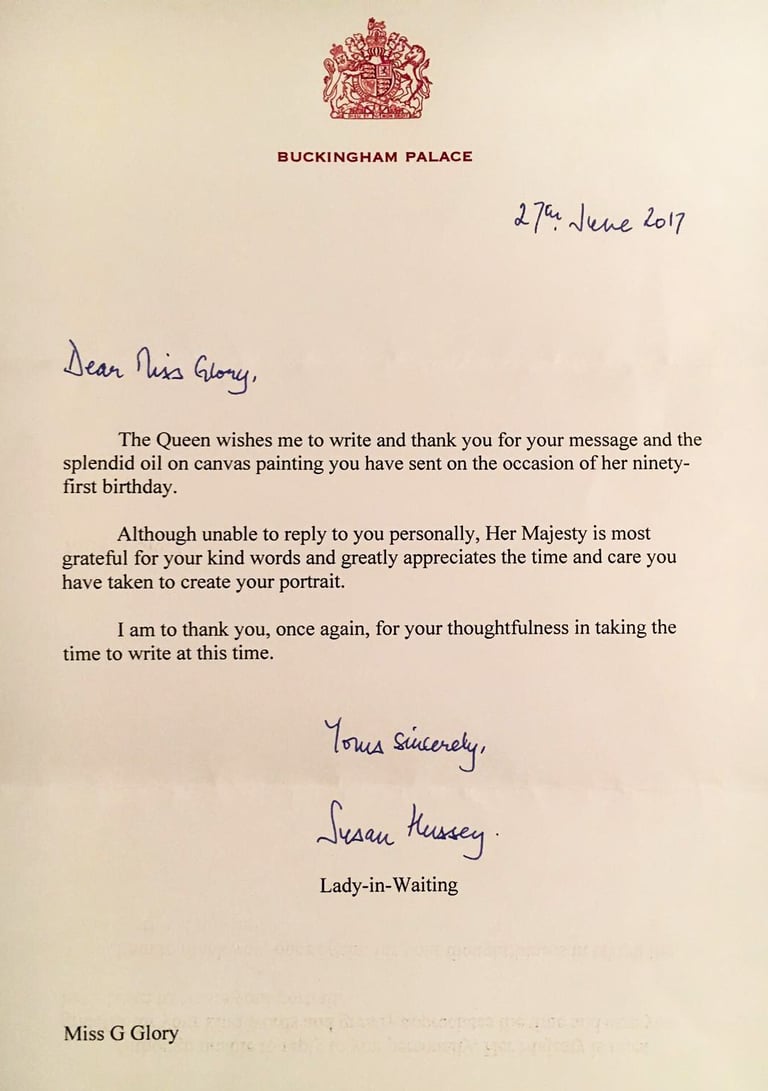 BUCKINGHAM PALACE
27th. June 2017
Dear Miss Glory,
The Queen wishes me to write and thank you for your message and the
splendid oil on canvas painting you have sent on the occasion of her ninety-
first birthday.
Although unable to reply to you personally, Her Majesty is most
grateful for your kind words and greatly appreciates the time and care you
have taken to create your portrait.
I am to thank you, once again, for your thoughtfulness in taking the
time to write at this time.
Yours sincerely,
Susan Hussey.
Lady-in-Waiting
Miss G Glory